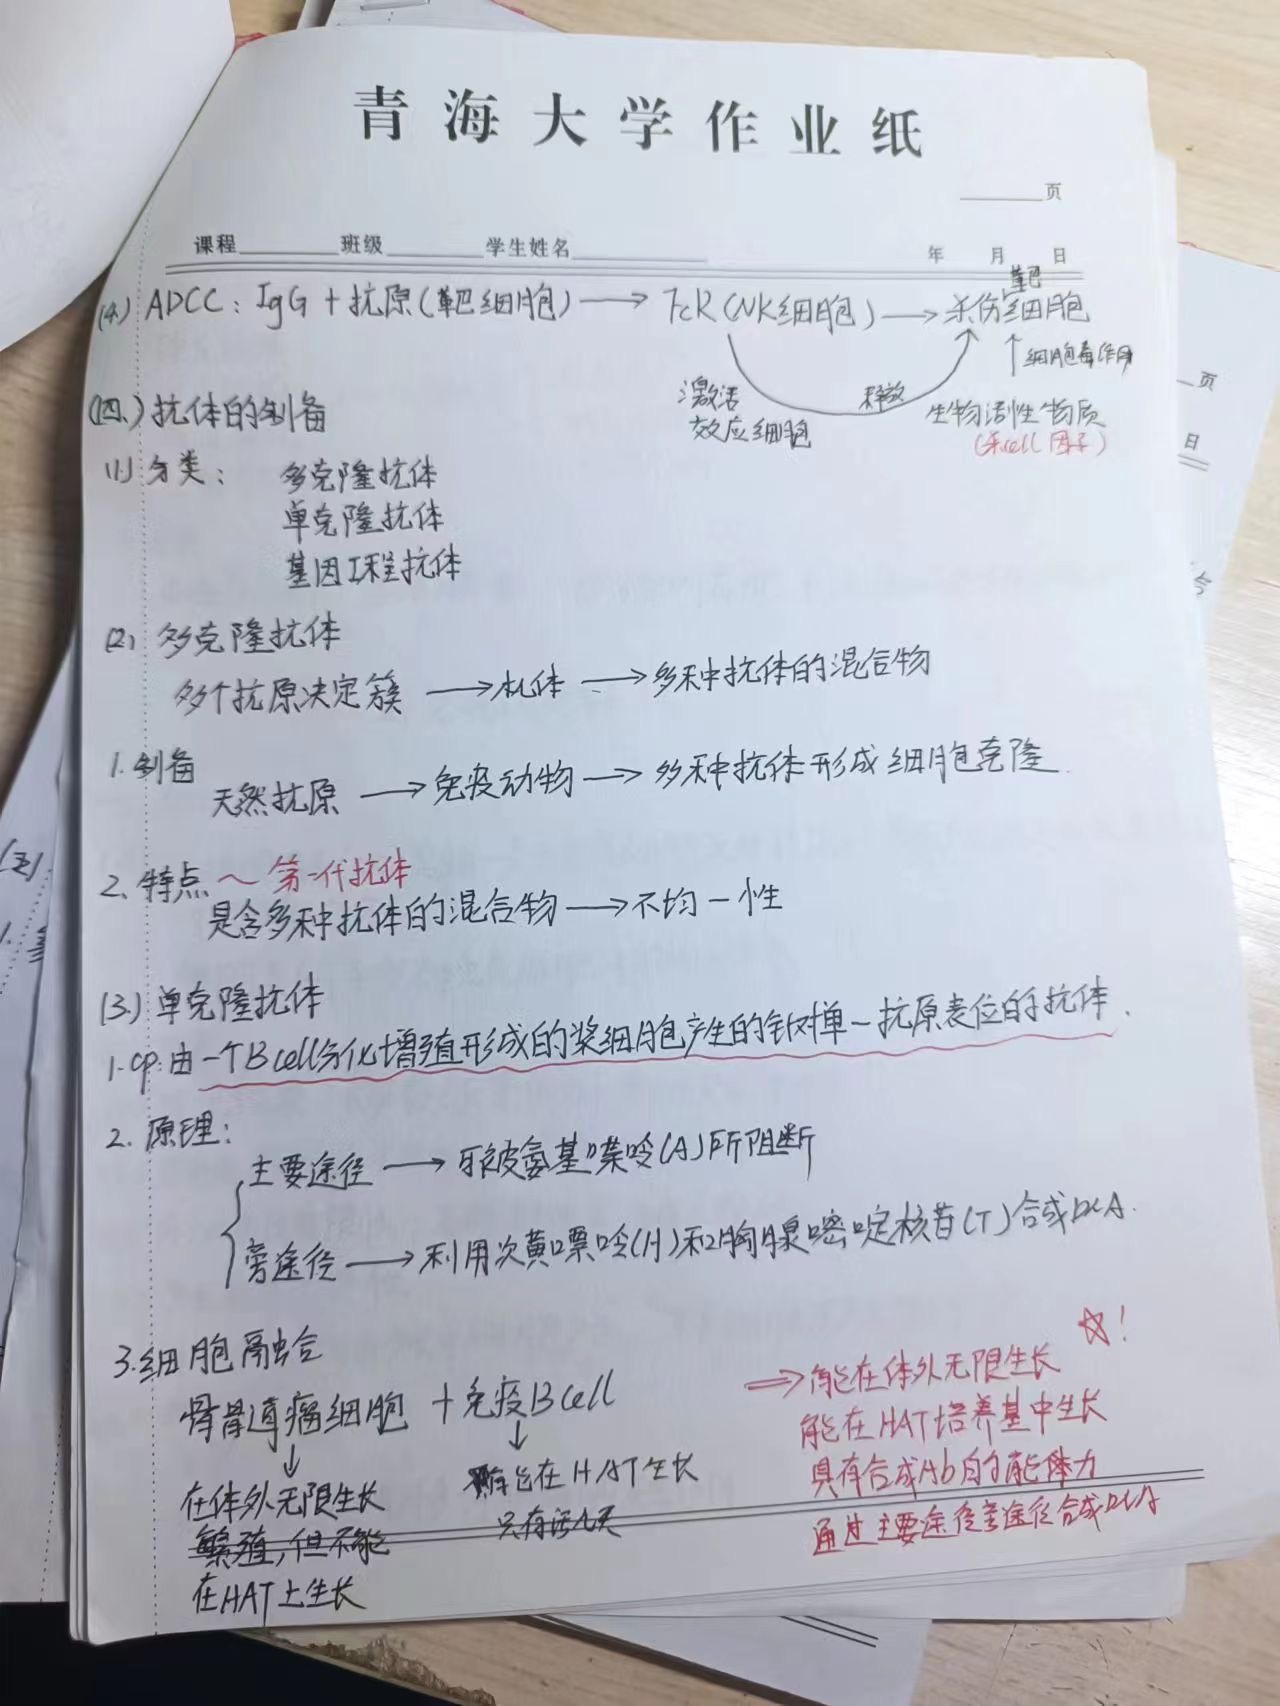 青海大学作业纸
页
课程 班级 学生姓名 年 月 日
靶
(4) ADCC: IgG + 抗原(靶细胞) → FcR(NK细胞) → 杀伤细胞
↑细胞毒作用
激活 释放 生物活性物质
效应细胞 (杀cell因子)
(四、) 抗体的制备
(1) 分类: 多克隆抗体
单克隆抗体
基因工程抗体
(2) 多克隆抗体
多个抗原决定簇 → 机体 → 多种抗体的混合物
1. 制备
天然抗原 → 免疫动物 → 多种抗体形成细胞克隆
2. 特点 ~ 第一代抗体
是含多种抗体的混合物 → 不均一性
(3) 单克隆抗体
1. cp: 由一个B cell分化增殖形成的浆细胞产生的针对单一抗原表位的抗体.
2. 原理:
主要途径 → 可被氨基喋呤(A)所阻断
旁途径 → 利用次黄嘌呤(H)和胸腺嘧啶核苷(T)合成DNA.
3. 细胞融合
骨髓瘤细胞 + 免疫B cell
↓ ↓
在体外无限生长 能在HAT生长
繁殖, 但不能 只有活几天
在HAT上生长
⇒ 能在体外无限生长 ☆!
能在HAT培养基中生长
具有合成Ab的能力
通过主要途径旁途径合成DNA
页
日